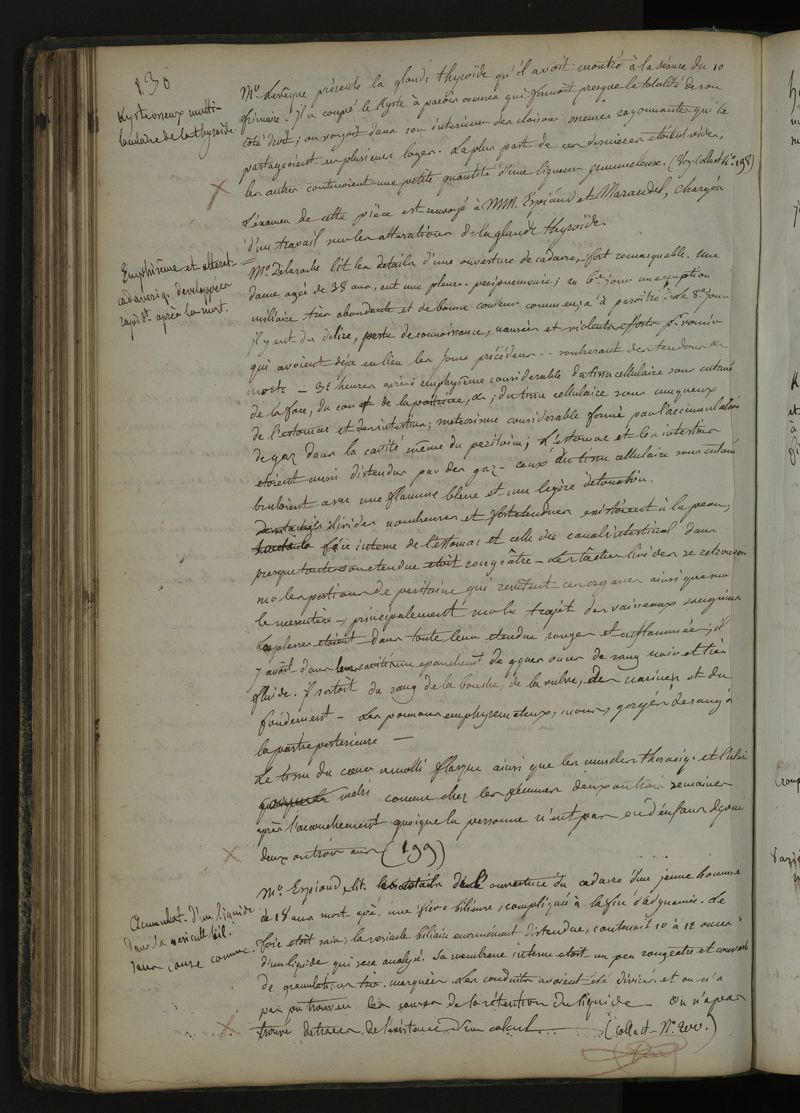 130
Kyste osseux multi-
loculaire de la thyroïde.
Mr. Levêque présente la glande thyroïde qu'il avoit montré à la séance du 10
frimaire. Il a coupé le Kyste à parois osseuses qui formoit presque la totalité de son
côté droit; on voyoit dans son intérieur des cloisons osseuses rayonnantes qui le
partageoient en plusieurs loges. La plus part de ces dernières étoient vides,
les autres contenoient une petite quantité d'une liqueur grumeleuse. (Voy. Collect. No. 198)
L'examen de cette pièce est renvoyé à MM. Espiaud et Marandel, chargés
d'un travail sur les altérations de la glande thyroïde.
Emphisème et alterat.
cadaveriq. developpées
rapidt. après la mort.
Mr. Delaroche lit les details d'une ouverture de cadavre, fort remarquable. Une
dame agée de 38 ans, eut une pleuro-peripneumonie; au 6e. jour une éruption
miliaire très abondante et de bonne couleur commença à paroitre; le 8e jour
il y eut du délire, perte de connoissance, nausées et violents efforts pr. vomir
qui avoient déja eu lieu les jours précédens - soubresaut des tendons
morte - 32 heures après emphysème considérable du tissu cellulaire sous cutané
de la face, du cou et de la poitrine, du tissu cellulaire sous muqueux
de l'estomac et des intestins; meteorisme considérable formé par l'accumulation
de gaz dans la cavité même du peritoine; l'estomac et les intestins
etoient aussi distendus par des gaz - ceux du tissu cellulaire sous cutané
bruloient avec une flamme bleue et une legère detonation.
livides nombreuses et fort etendues existoient à la peau;
face interne de l'estomac et celle du canal intestinal dans
presque toute son etendue etoit rougeâtre - Les tâches livides se retrouvoient
sur les portions de peritoine qui revêtent ces organes ainsi que sur
le mesentère, principalement sur le trajet des vaisseaux sanguins
Les plevres etoient dans toute leur etendue rouges et enflammées; il
y avoit dans leurs cavités un epanchement de qques onces de sang noir et très
fluide. Il sortoit du sang de la bouche, de la vulve, des narines et du
fondement - Les poumons emphysemateux, mous, gorgés de sang à
la partie posterieure -
Le tissu du coeur ramolli flasque ainsi que les muscles thoraciq. et l'uterus
comme chez les femmes deux ou trois semaines
après l'accouchement quoique la personne n'eut pas eu d'enfans depuis
deux ou trois ans (199)
Accumulat. d'un liquide
dans la vesicule bil.
sans cause connue.
Mr. Espiaud lit l'ouverture du cadavre d'un jeune homme
de 18 ans mort après une fièvre bilieuse, compliquée à la fin d'adynamie. Le
foie etoit sain; la vesicule biliaire enormément distendue, contenoit 10 à 12 onces
d'un liquide qui sera analysé. Sa membrane interne etoit un peu rougeatre et couverte
de granulations très marquées. Les conduits avoient été disséqués et on n'a
pas pu trouver les causes de la rétention du liquide - On n'a pas
trouvé de traces de l'existence d'un calcul. (Collect. No. 200.)